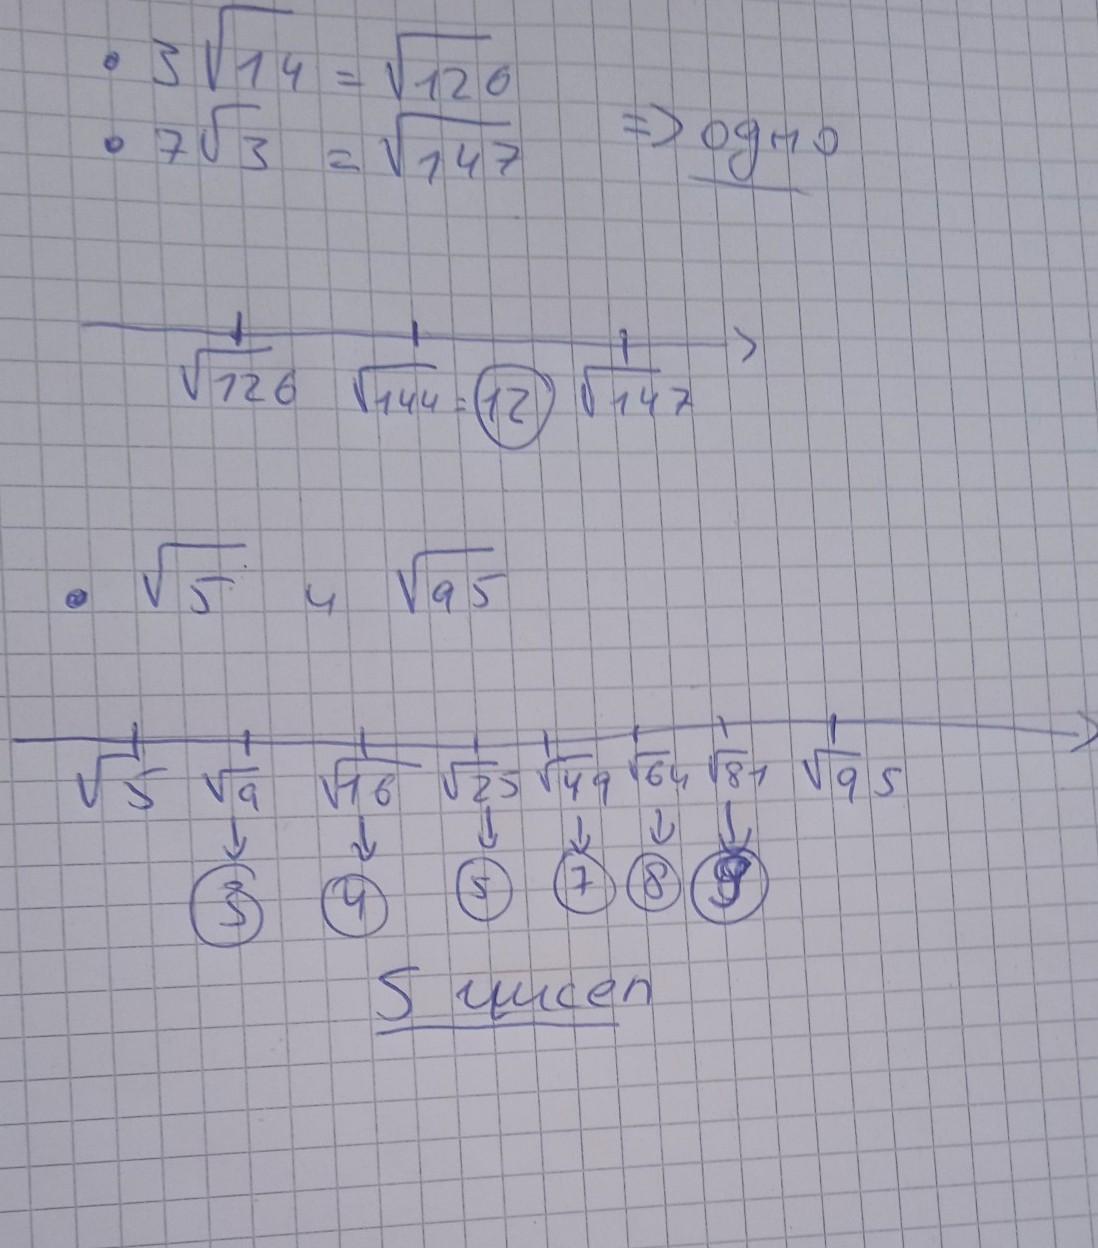 • 3√14 = √126
• 7√3 = √147 => одно
√126 √144 = 12 √147
• √5 и √95
√5 √9 √16 √25 √49 √64 √81 √95
↓ ↓ ↓ ↓ ↓ ↓
3 4 5 7 8 9
5 чисел